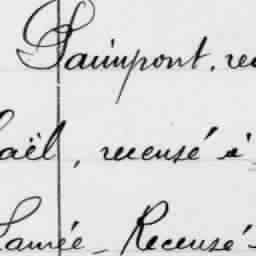 Paimpont, re
aël, recensé à
Lanrée - Recensé